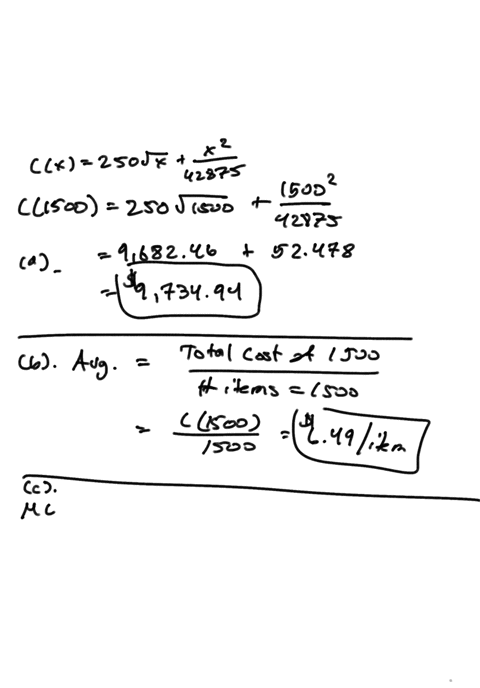 C(x) = 250√x + x²/42875
C(1500) = 250√1500 + 1500²/42875
(a). = 9,682.46 + 52.478
= $9,734.94
(b). Avg. = Total Cost of 1500 / # items = 1500
= C(1500)/1500 = $6.49/item
(c).
MC